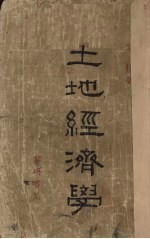 土地經濟學